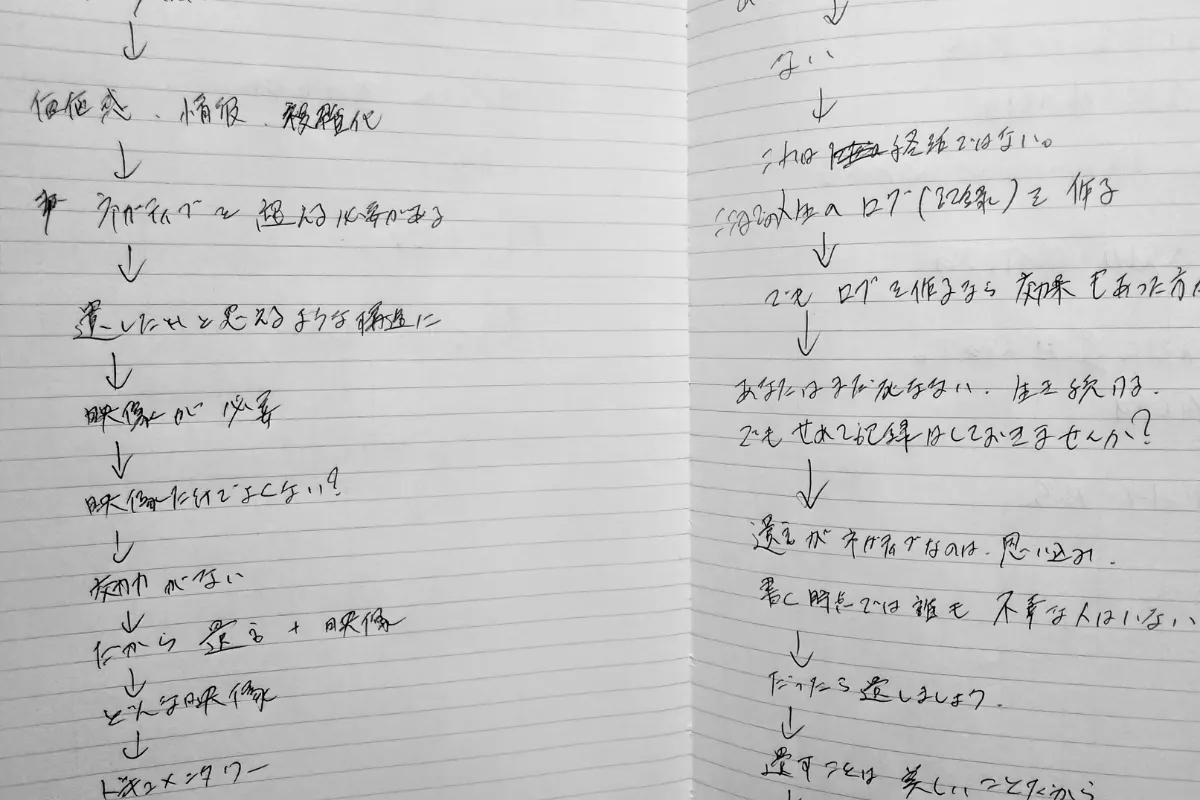 ↓
価値感、情報、複雑化
↓
ネガティブを超える必要がある
↓
遺したいと思えるような構造に
↓
映像が必要
↓
映像だけでよくない?
↓
効力がない
↓
だから遺言+映像
↓
どんな映像
↓
ドキュメンタリー
↓
ない
↓
これは終活ではない。
ここまでの人生のログ(記録)を作る
↓
でもログを作るなら効果もあった方が
↓
あなたはまだ死なない、生き続ける.
でもせめて記録はしておきませんか?
↓
遺言がネガティブなのは、思い込み.
書く時点では誰も不幸な人はいない
↓
だったら遺しましょう.
↓
遺すことは美しいことだから